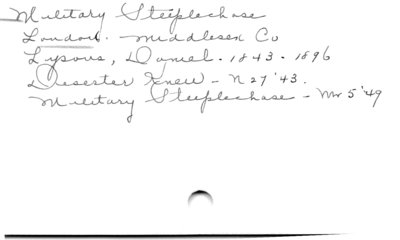 Military Steeplechase
London. Middlesex Co
Lysons, Daniel. 1843. 1896
Disester Knew - N 27 '43.
Military Steeplechase - Mr 5 '49